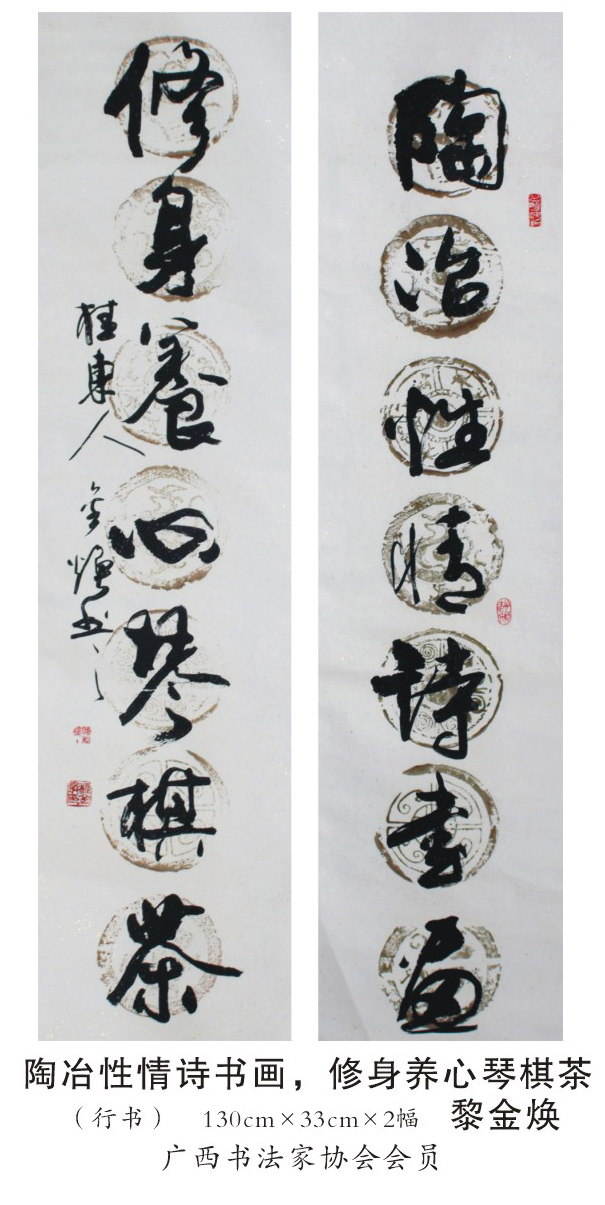 陶冶性情詩書畫
修身養心琴棋茶
桂東人
金煥书
陶冶性情诗书画，修身养心琴棋茶
（行书） 130cm×33cm×2幅 黎金焕
广西书法家协会会员